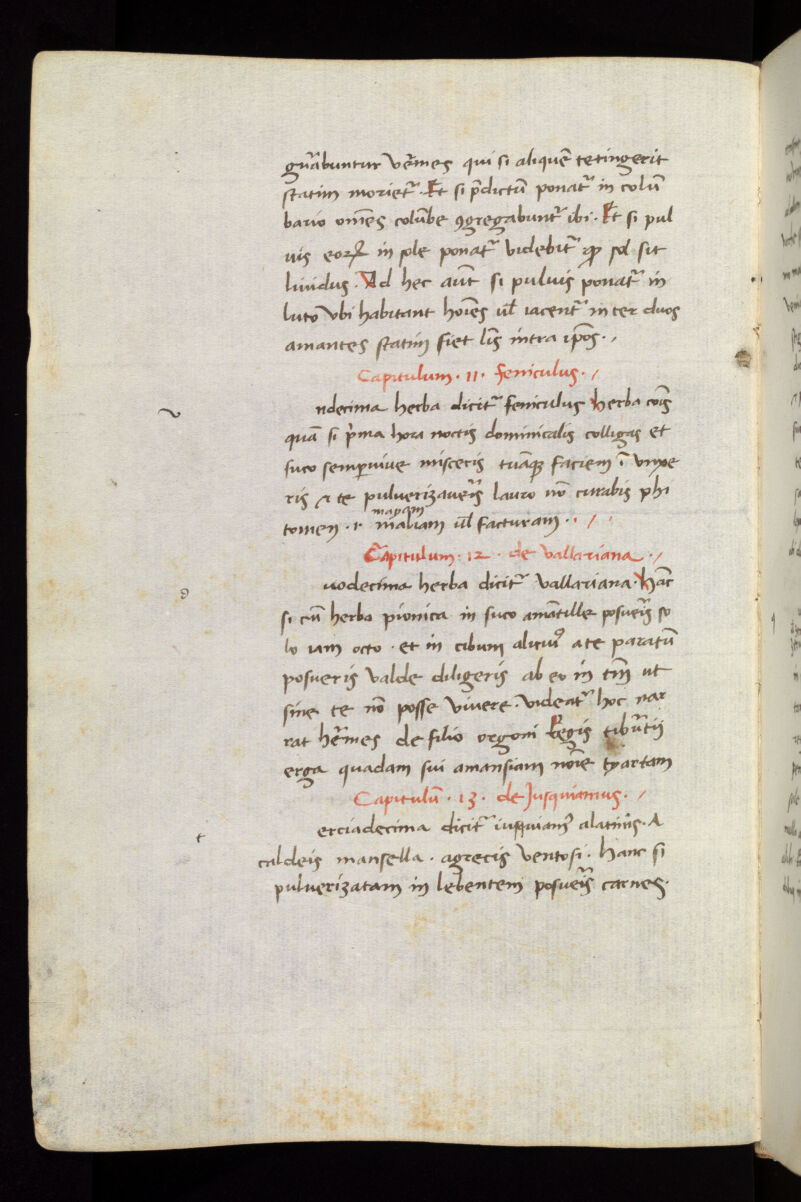 gñabuntur v̄mes qui si aliquē tetingerit
statim moriet᷑. Et si p̄dictū ponat᷑ in colū
bario om̄es colūbe ꝯgregabunt᷑ ibi. Et si pul
uis eoꝝ in sole ponat᷑ videbit᷑ ꝙ sol sit
liuidus. Ad hec aūt si puluis ponat᷑ in
luto vbi habitant hoīes ul̄ iacent᷑ inter duos
amantes statim fiet lis intra ip̄os. /
Capitulum. 11. feniculus. /
ndecima herba dicit᷑ feniculus herba cōis
quā si p̄ma hora noctis dominicalis colligas et
suco semꝑuiue misceris tuāqꝫ faciem ī vnxe
ris te pulverizaveris lauro nō curabis phi
tomen. maliam ul̄ facturam. / /
Capitulum. 12. de vallariana. /
uodecima herba dicit᷑ vallariana. Hāc
si cū herba pionica in suco amātille posueis so
lo iam octo. et in cibum alicuiꝰ a te paratū
posueris valde diligeris ab eo in tm̄ ut
sine te nō posse vivere. videat᷑ hoc nar
rat hermes de filio orgoni Regis tibur̄tii
erga quadam sui amansiam noīe tyartam
Capitulū. 13. de Jusquiamus. /
t erciadecima dicit᷑ iusquianꝰ alatinis. A
caldeis mansella. agrecis ventosi. Hanc si
pulverizatam in lebentem posueis carnes.